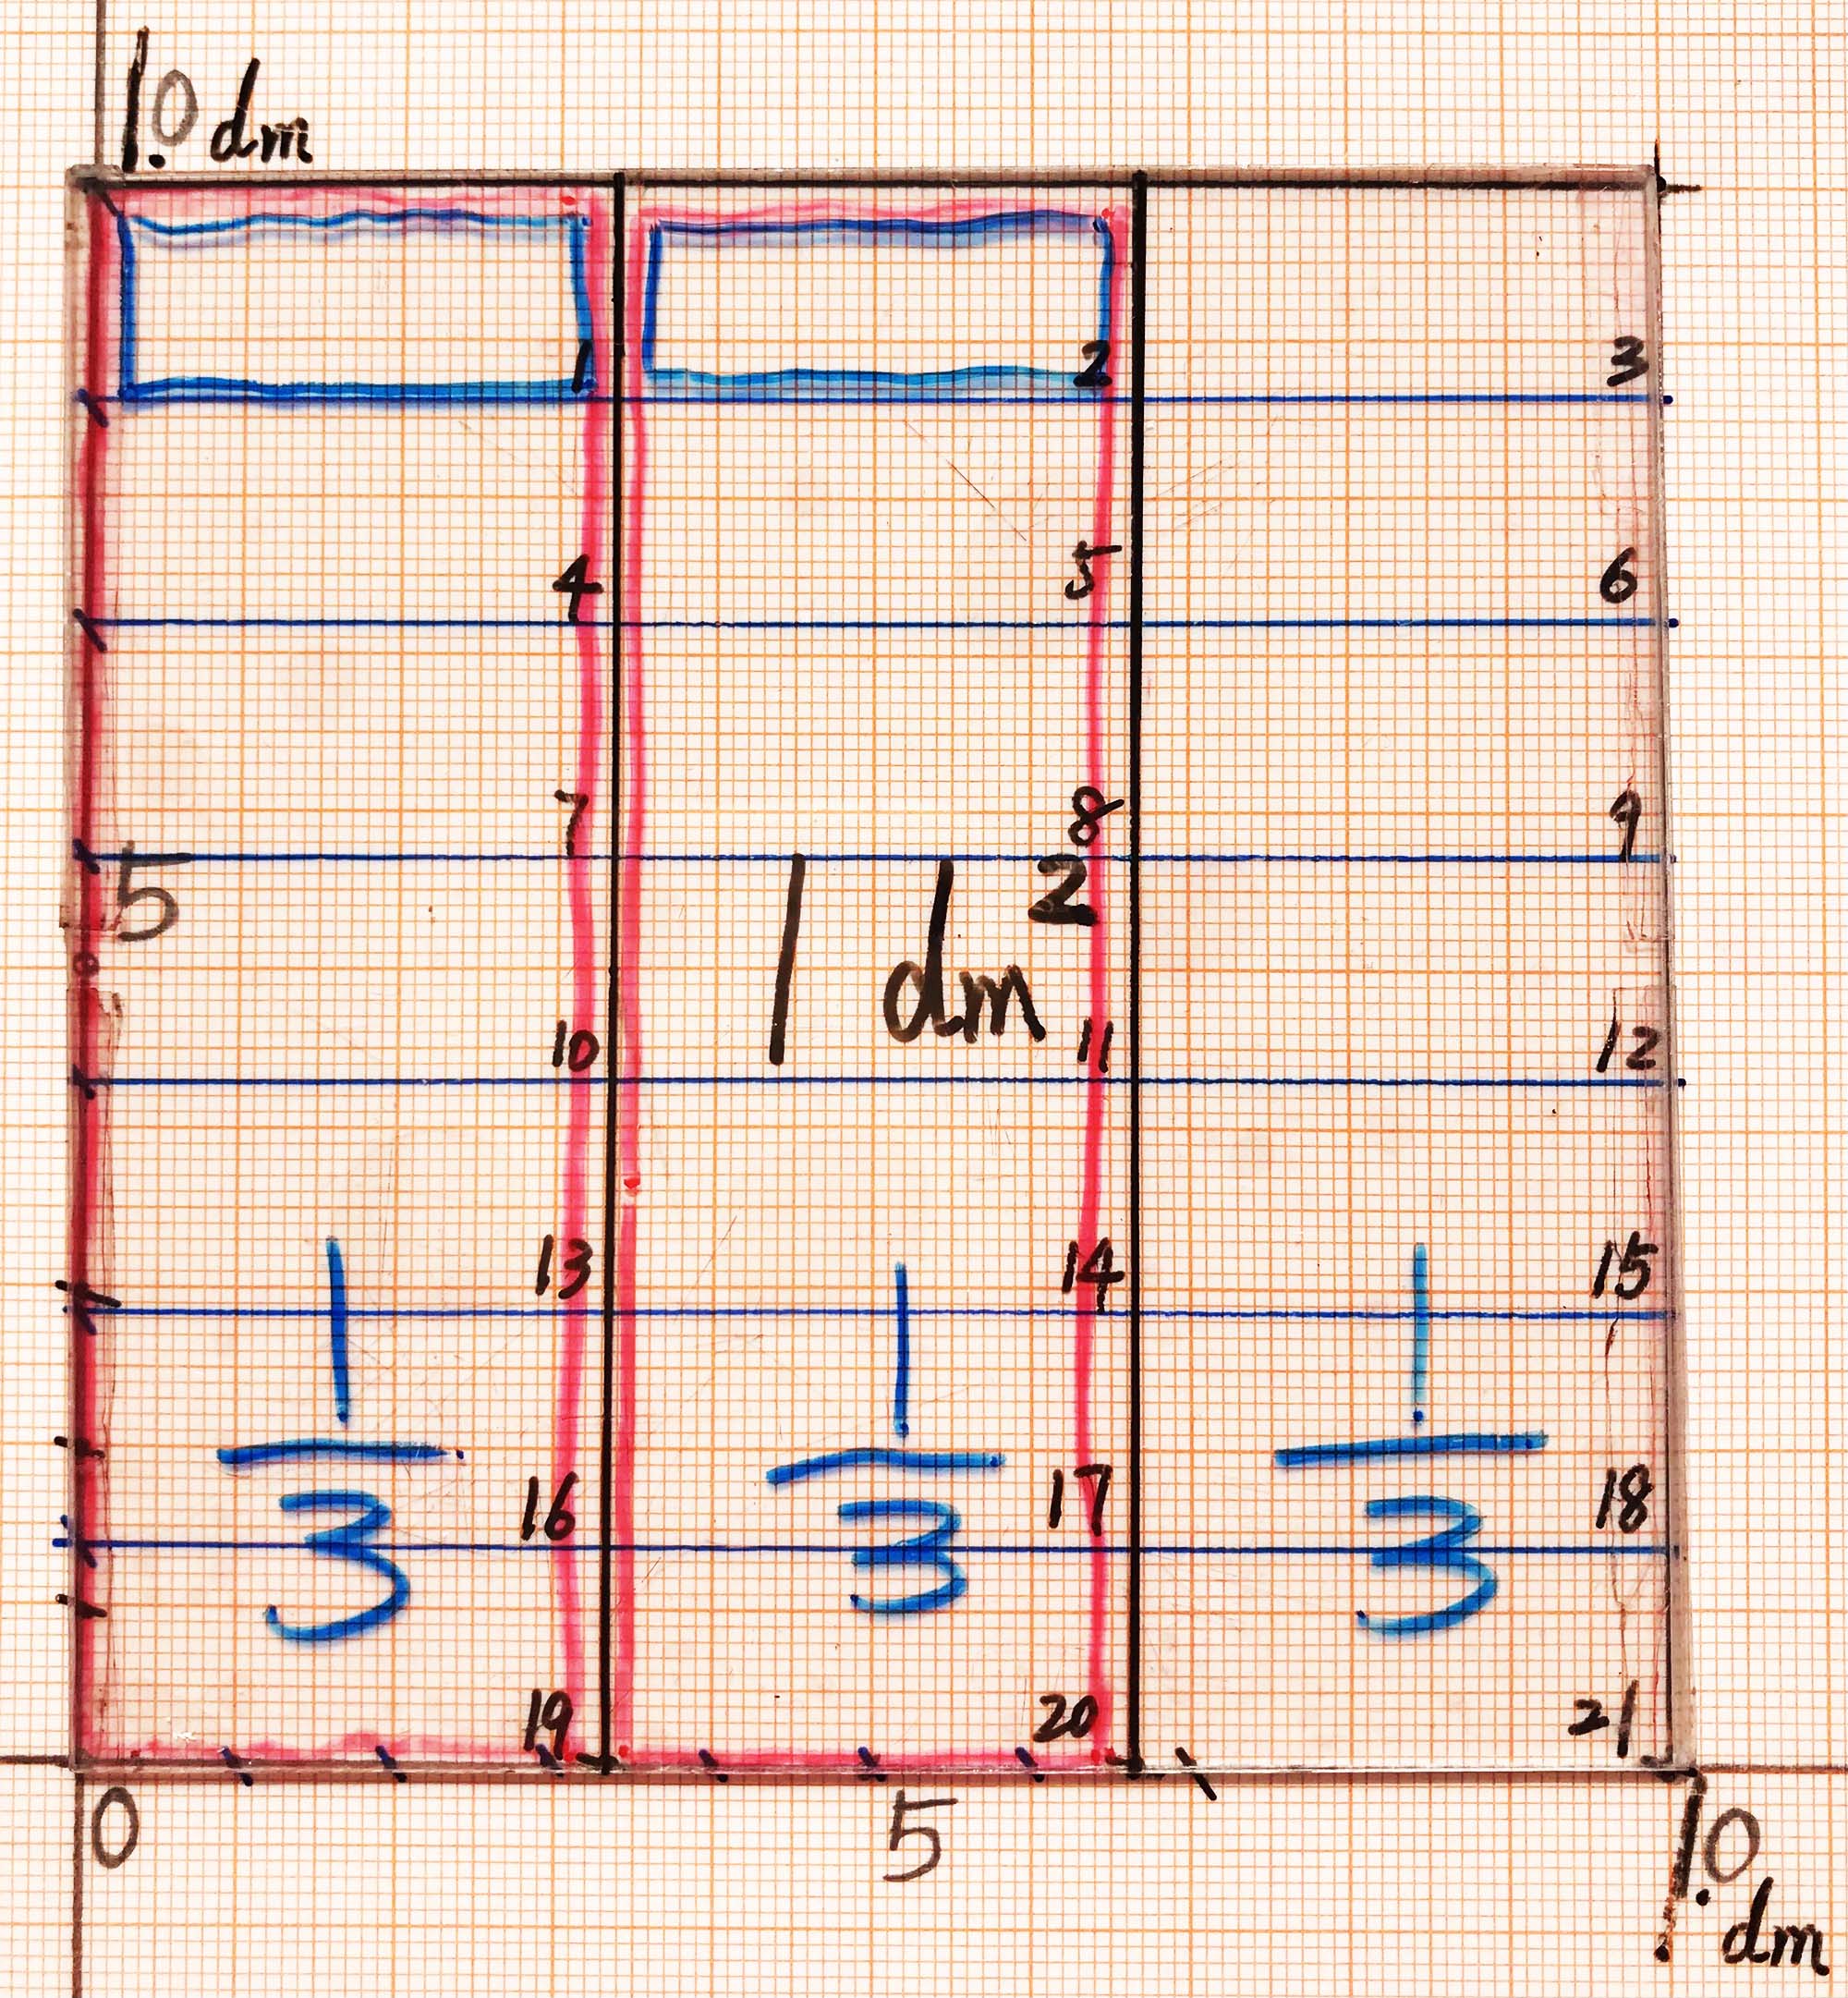 1.0 dm
1 2 3
4 5 6
7 8 9
5
1 dm²
10 11 12
13 14 15
1/3 1/3 1/3
16 17 18
19 20 21
0 5 1.0 dm